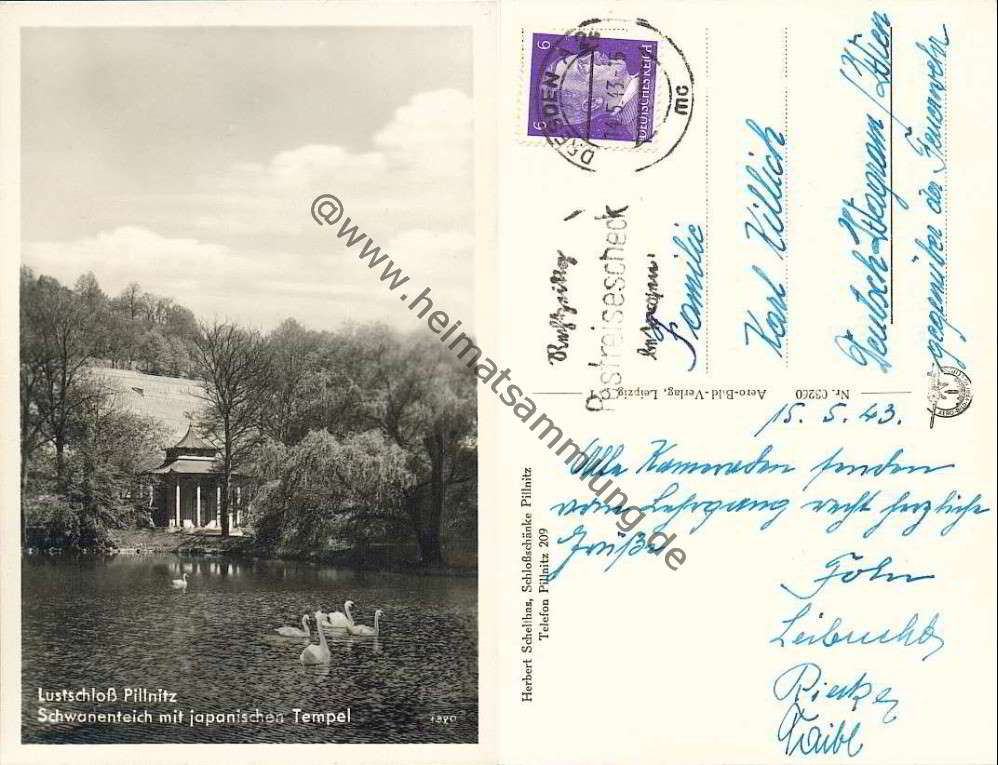 Lustschloß Pillnitz
Schwanenteich mit japanischen Tempel
@www.heimatsammlung.de
6
6
DEUTSCHES REICH
DRESDEN
5.43-
mc
Rechtzeitig
Postreisescheck
besorgen.
Familie
Karl Killich
Deutsch-Wagram / Wien
gegenüber der Feuerwehr
Aero-Bild-Verlag, Leipzig
Nr. 03260
Herbert Schelthas, Schloßschänke Pillnitz
Telefon Pillnitz 209
15. 5. 43.
Alle Kameraden senden
vom Lehrgang recht herzliche
Grüße